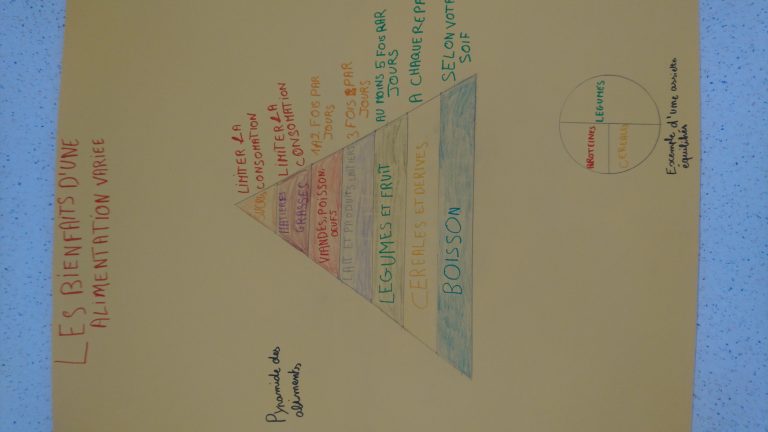 LES BIENFAITS D'UNE
ALIMENTATION VARIEE
Pyramide des
aliments
SUCRE
LIMITER LA
CONSOMATION
MATIERES
GRASSES
LIMITER LA
CONSOMATION
VIANDES, POISSON,
OEUFS
1 A 2 FOIS PAR
JOURS
LAIT ET PRODUITS LAITIERS
3 FOIS PAR
JOURS
LEGUMES ET FRUIT
AU MOINS 5 FOIS PAR
JOURS
CEREALES ET DERIVES
A CHAQUE REPA
BOISSON
SELON VOTR
SOIF
LEGUMES
PROTEINES
CEREALES
Exemple d'une assiette
équilibrée